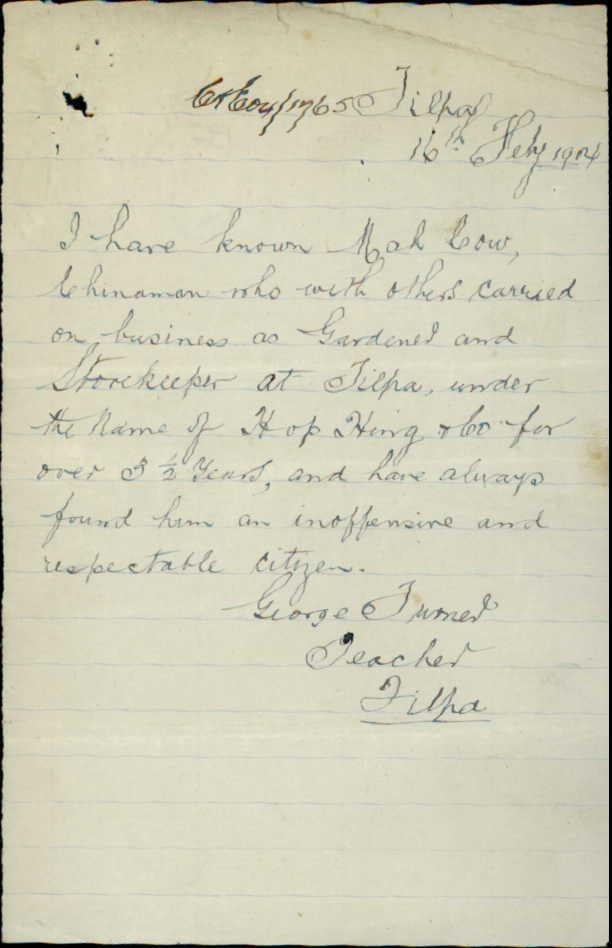 Tilpa
16th Feby 1904
I have known Mah Cow,
Chinaman who with others carried
on business as Gardener and
Storekeeper at Tilpa, under
the Name of Hop Hing & Co for
over 3 ½ Years, and have always
found him an inoffensive and
respectable citizen.
George Turner
Teacher
Tilpa